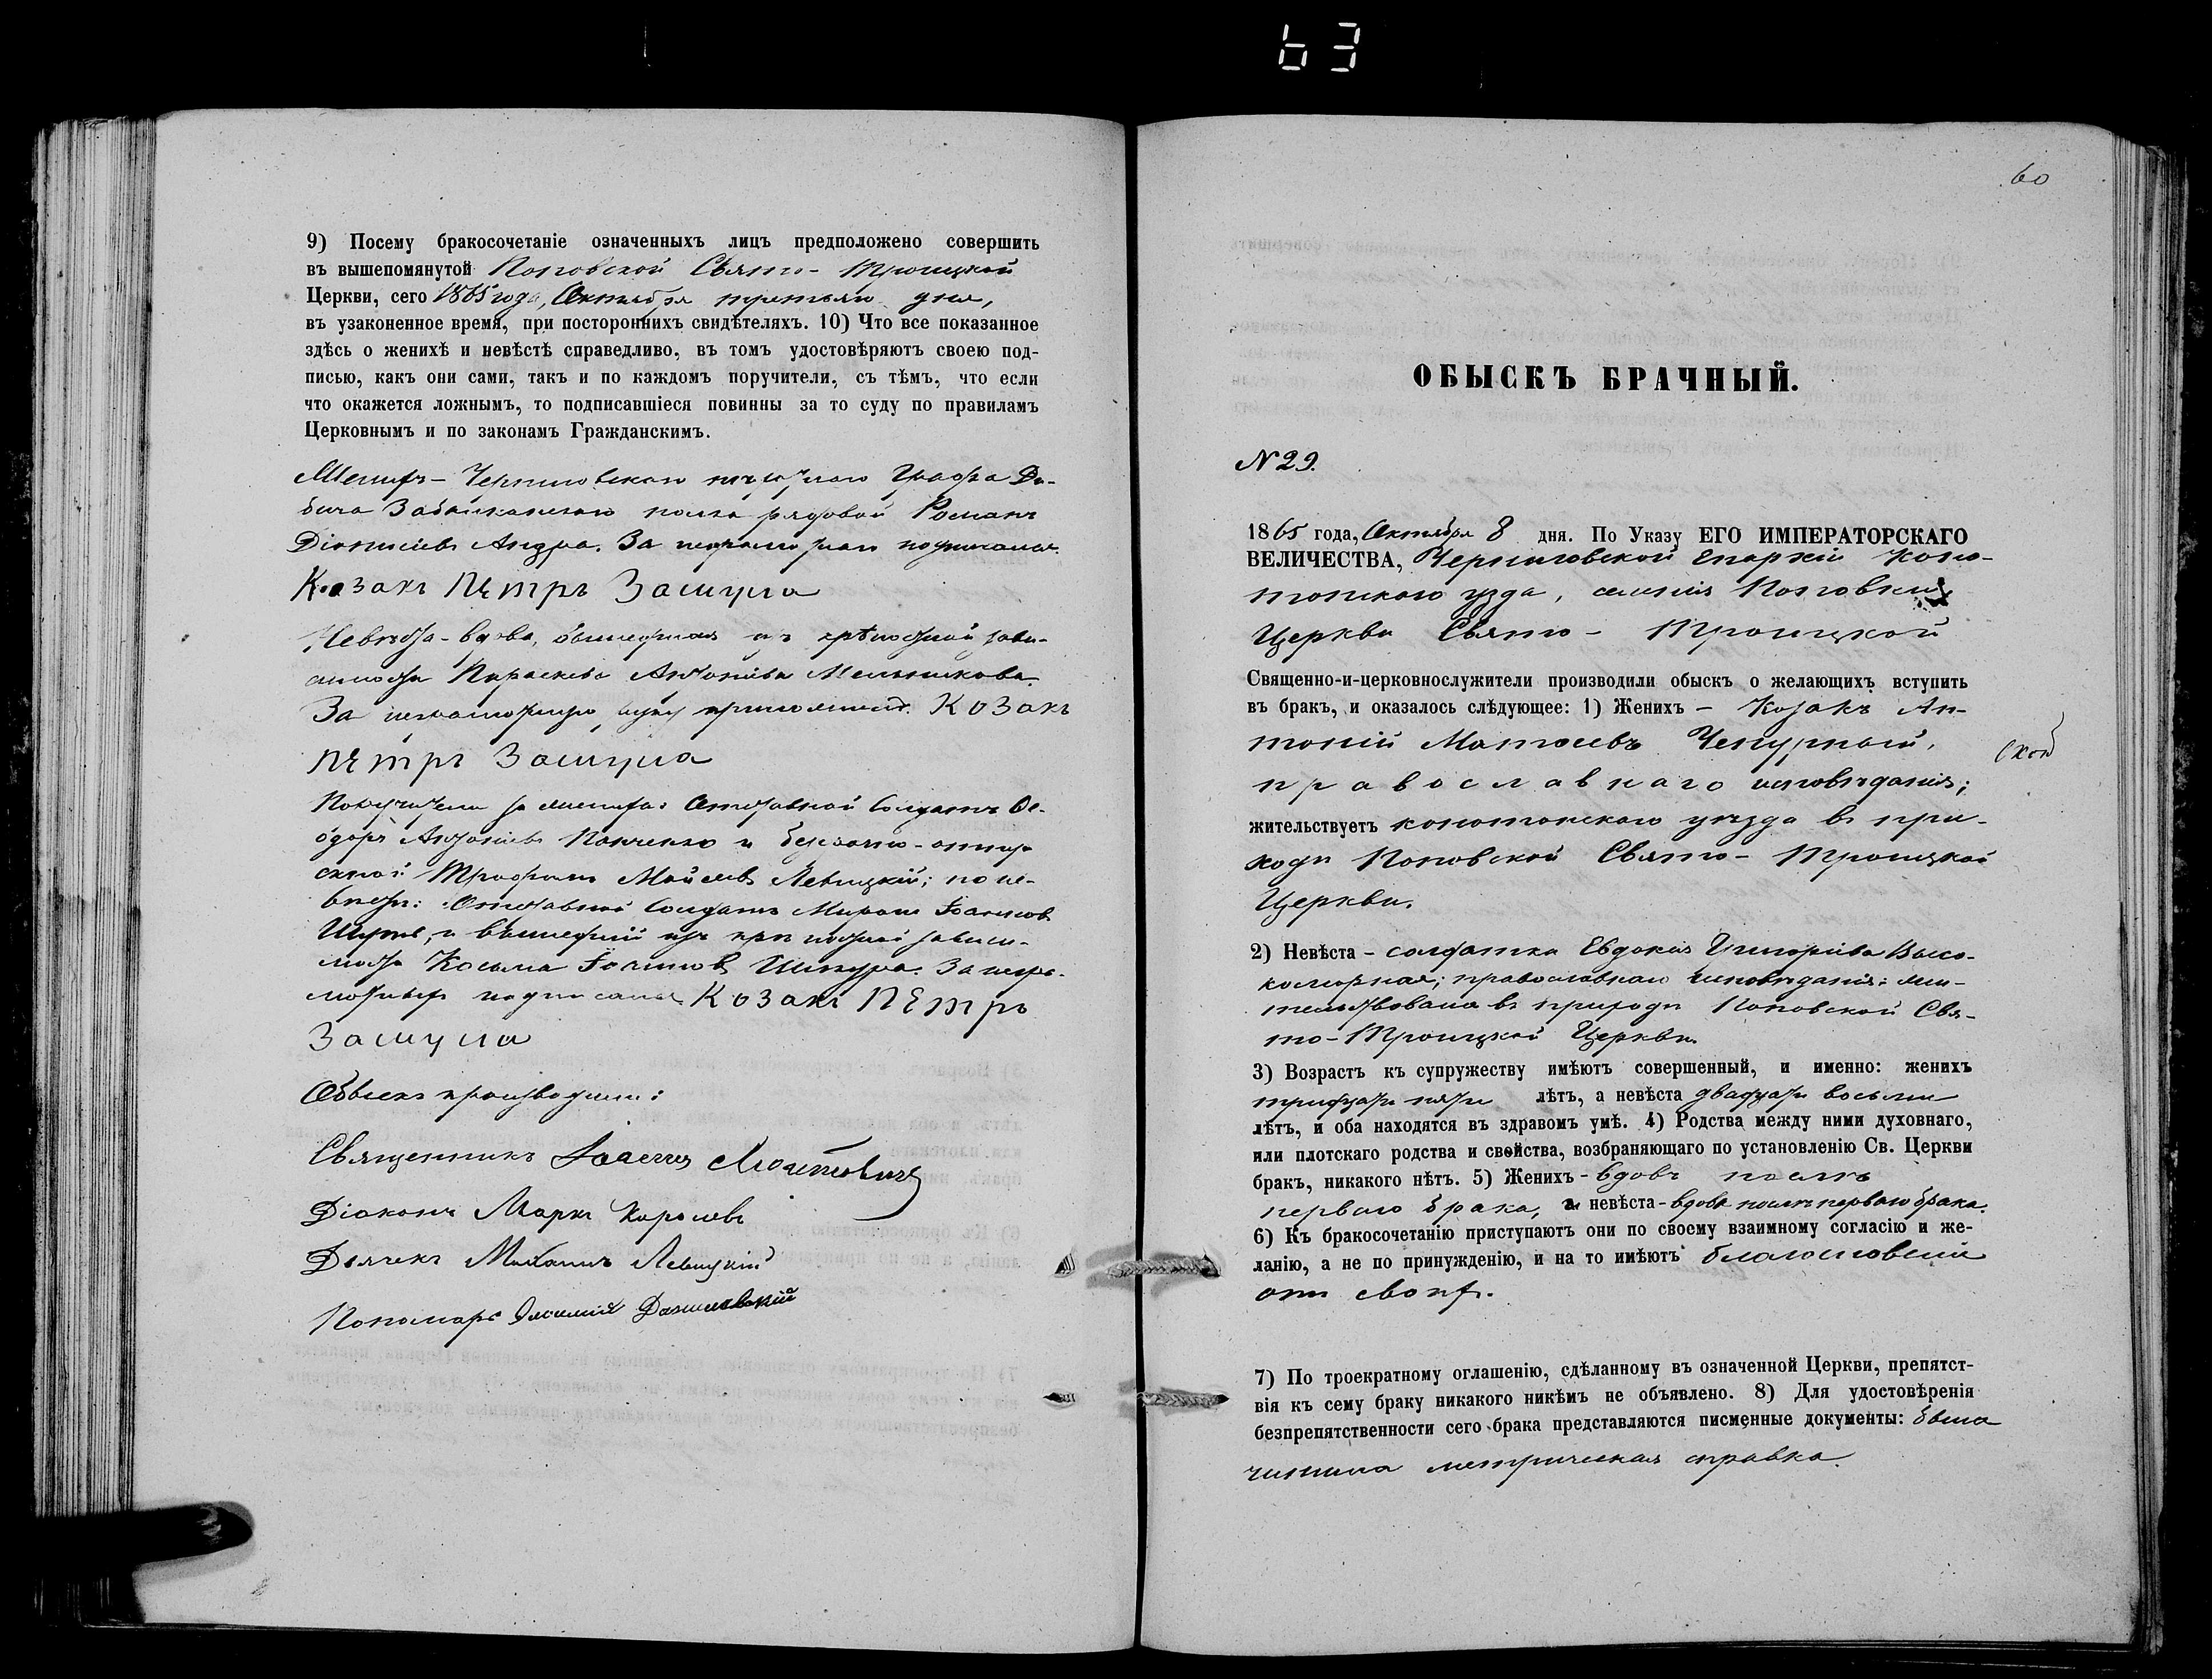 63
9) Посему бракосочетаніе означенныхъ лицъ предположено совершить
въ вышепомянутой Поповской Свято-Троицкой
Церкви, сего 1865 года, Октября третьяго дня,
въ узаконенное время, при постороннихъ свидѣтеляхъ. 10) Что все показанное
здѣсь о женихѣ и невѣстѣ справедливо, въ томъ удостовѣряютъ своею под-
писью, какъ они сами, такъ и по каждомъ поручители, съ тѣмъ, что если
что окажется ложнымъ, то подписавшіеся повинны за то суду по правиламъ
Церковнымъ и по законамъ Гражданскимъ.
Женихъ - Черниговскаго Графа Ди-
бича Забалканскаго полка рядовой Романъ
Діонисіевъ За неграмотнаго подписался
Козакъ Пѣтръ Зашула
Невѣста - вдова, вышедшая изъ крѣпостной зави-
симости Параскева Антоніева Мельникова.
За неграмотную руку приложилъ Козакъ
Пѣтръ Зашула
Поручители по женихѣ: Отставной Солдатъ Ѳе-
одоръ Антоніевъ Панченко и безсрочно-отпу-
скной Трофимъ Моѵсеевъ Левицкій; по не-
вѣстѣ: Отставной Солдатъ Миронъ Іоанновъ
и вышедшій изъ крѣпостной зависи-
мости Косьма Іоанновъ За негра-
мотныхъ подписался Козакъ ПЕтръ
Зашула
Обыскъ производили:
Священникъ Іоаннъ
Діаконъ Маркъ Королевъ
Дьячекъ Михаилъ Левицкій
Пономарь Данилевскій
60
ОБЫСКЪ БРАЧНЫЙ.
N 29.
1865 года, Октября 8 дня. По Указу ЕГО ИМПЕРАТОРСКАГО
ВЕЛИЧЕСТВА, Черниговской Епархіи Коно-
топскаго уѣзда, селенія Поповки
Церкви Свято-Троицкой
Священно-и-церковнослужители производили обыскъ о желающихъ вступить
въ бракъ, и оказалось слѣдующее: 1) Женихъ - Козакъ Ан-
тоній Матѳеевъ Чепурный,
православнаго исповѣданія;
жительствуетъ конотопскаго уѣзда въ при-
ходѣ Поповской Свято-Троицкой
Церкви.
2) Невѣста - солдатка Евдокія Григоріева Высо-
православнаго исповѣданія; жи-
тельствовала въ приходѣ Поповской Свя-
то-Троицкой Церкви.
3) Возрастъ къ супружеству имѣютъ совершенный, и именно: женихъ
тридцати пяти лѣтъ, а невѣста двадцати восьми
лѣтъ, и оба находятся въ здравомъ умѣ. 4) Родства между ними духовнаго,
или плотскаго родства и свойства, возбраняющаго по установленію Св. Церкви
бракъ, никакого нѣтъ. 5) Женихъ - вдовъ послѣ
перваго брака, а невѣста - вдова послѣ перваго брака.
6) Къ бракосочетанію приступаютъ они по своему взаимному согласію и же-
ланію, а не по принужденію, и на то имѣютъ благословеніе
отъ своихъ.
7) По троекратному оглашенію, сдѣланному въ означенной Церкви, препятст-
вія къ сему браку никакого никѣмъ не объявлено. 8) Для удостовѣренія
безпрепятственности сего брака представляются писменные документы: была
чинима метрическая справка.